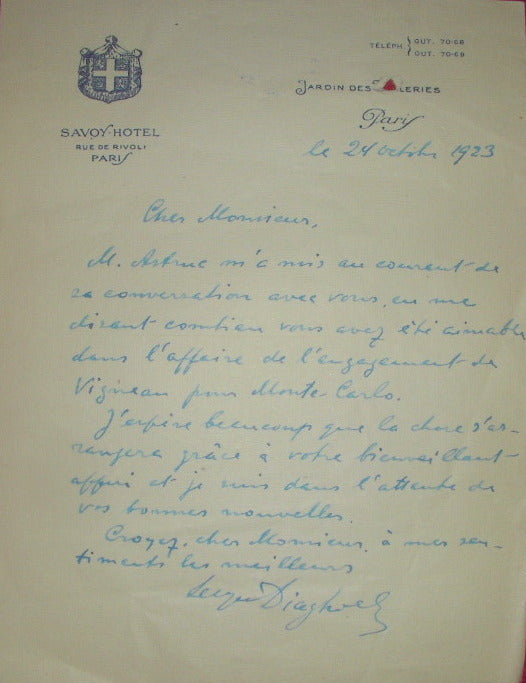 TÉLÉPH. GUT. 70-68
GUT. 70-69
JARDIN DES LERIES
Paris
SAVOY-HOTEL
RUE DE RIVOLI
PARIS
le 24 octobre 1923
Cher Monsieur,
M. Astruc m'a mis au courant de
sa conversation avec vous, en me
disant combien vous avez été aimable
dans l'affaire de l'engagement de
Vigneau pour Monte-Carlo.
J'espère beaucoup que la chose s'ar-
rangera grâce à votre bienveillant
appui et je suis dans l'attente de
vos bonnes nouvelles.
Croyez, cher Monsieur, à mes sen-
timents les meilleurs
Serge Diaghilew